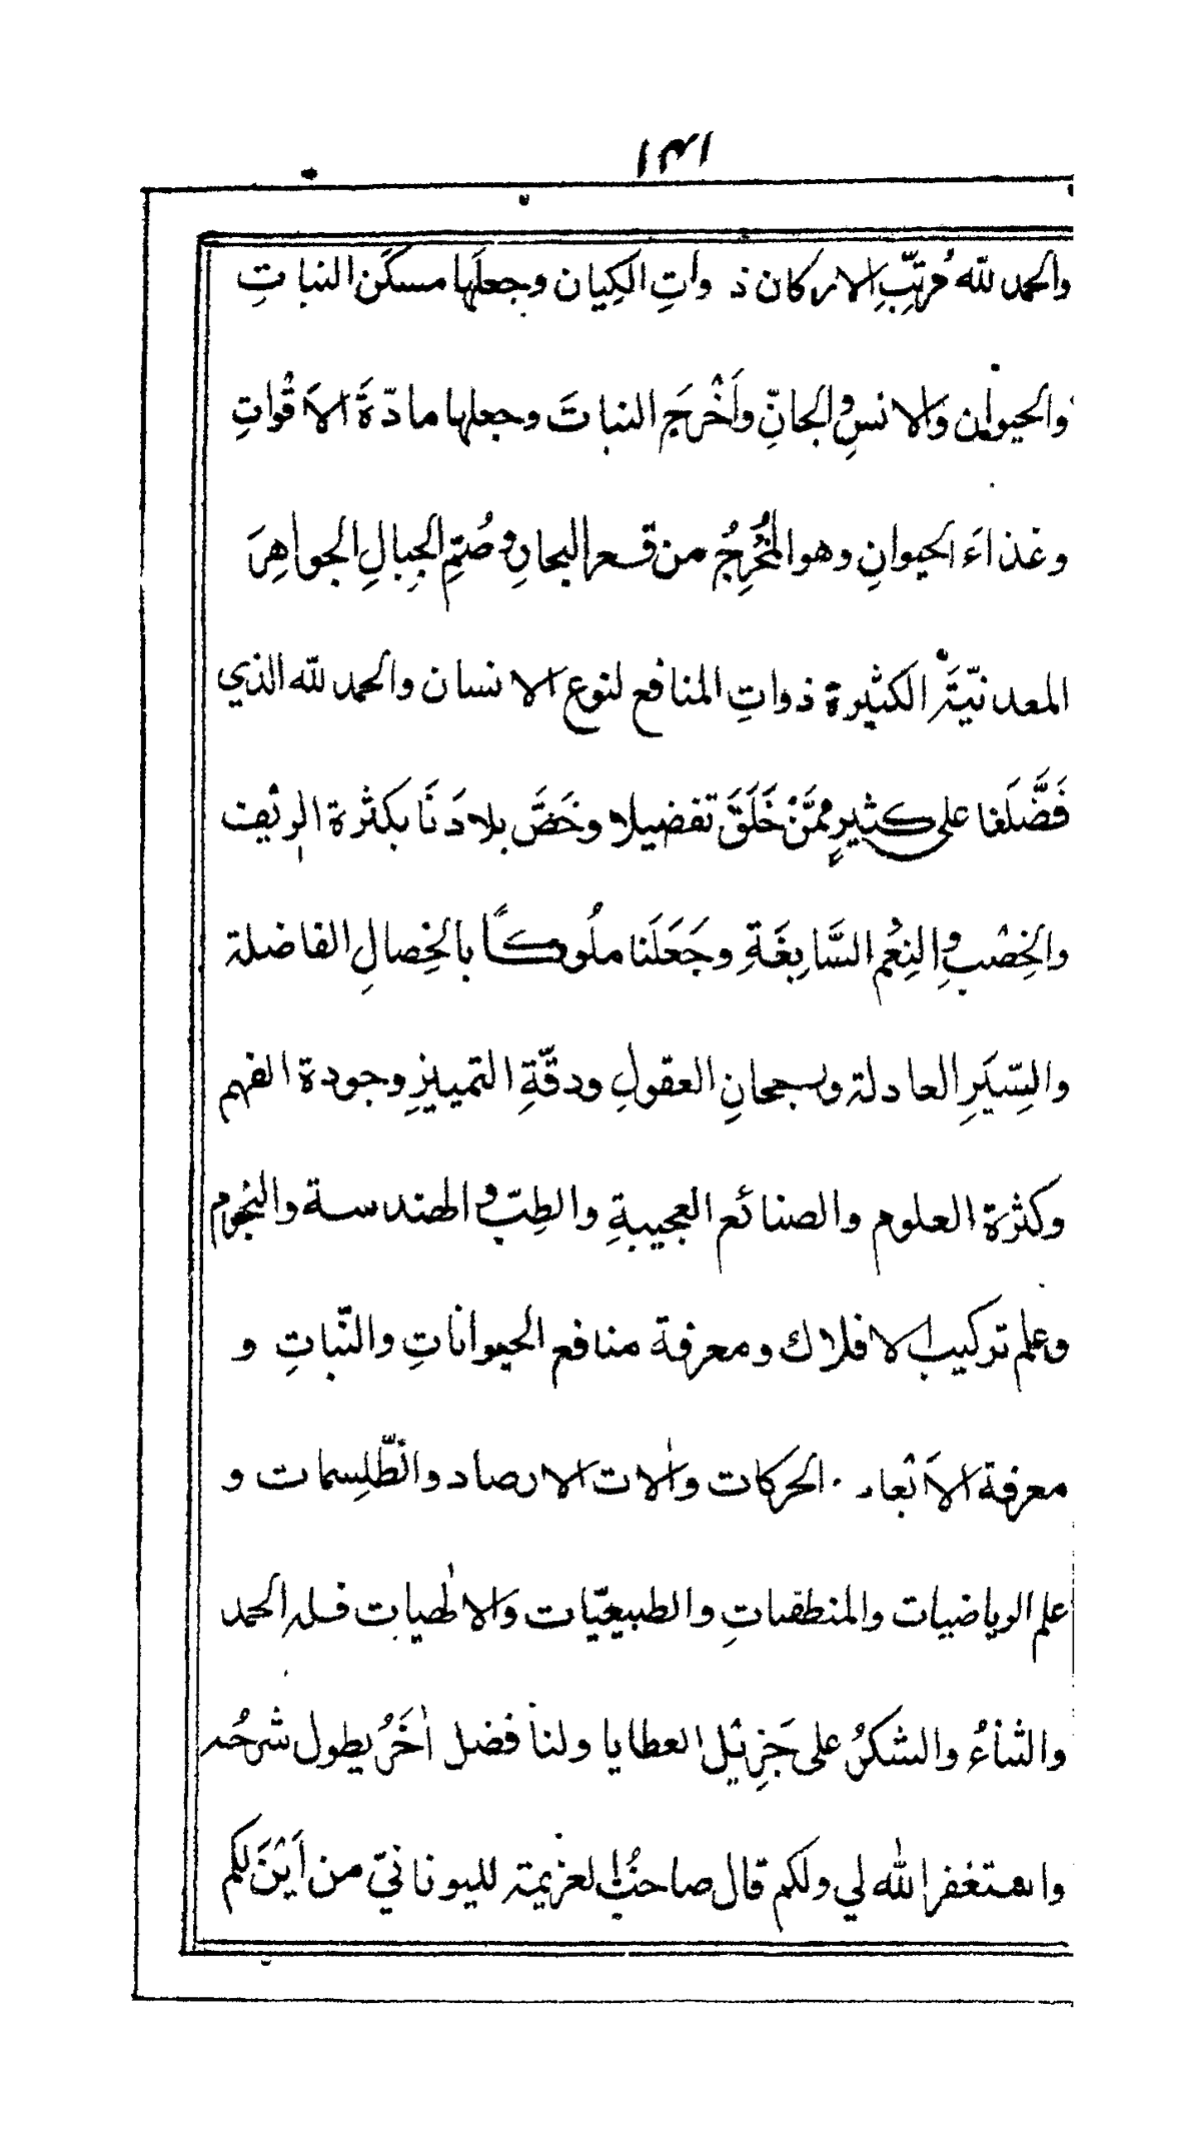 ١٣١
والحمد لله مُرتِّبِ الاركان ذ واتِ الكِيان وجعلَها مسكَن النباتِ
والحيوان وَالانسِ والجانِّ وأَخْرَجَ النباتَ وجعلها مادّةَ الاَقْواتِ
وغذاءَ الحيوانِ وهو المُخْرِجُ من قعر البحارِ وصُتمِ الجبالِ الجواهِرَ
المعدنيّةَ الكثيرة ذواتِ المنافع لنوع الانسان والحمد لله الذي
فَضَّلَنا على كثيرٍ ممَّنْ خَلَقَ تفضيلا وخَصَّ بلادَنَا بكثرة الريْف
والخِصْبِ والنِعْم السَّابِغَةِ وجَعَلَنا ملُوكًا بالخِصالِ الفاضلة
والسِّيَرِ العادلة ورجحانِ العقولِ ودقّةِ التمييزِ وجودة الفهم
وكثرة العلوم والصنائع العجيبةِ والطِبّ والهندسة والنجُوم
وعلم تركيب الافلاك ومعرفة منافع الحيواناتِ والنّباتِ و
معرفة الاَبْعاد الحركات والٰات الارصاد والطِّلِسمات و
علم الرياضيات والمنطقياتِ والطبيعيّات وَالالٰهيات فله الحمد
والثناءُ والشكرُ على جَزِيْل العطايا ولنا فضل اٰخَرُ يطول شرحُه
واستغفر اللّٰه لي ولكم قال صاحبُ العزيمة لليونانيّ من اَيْنَ لكم